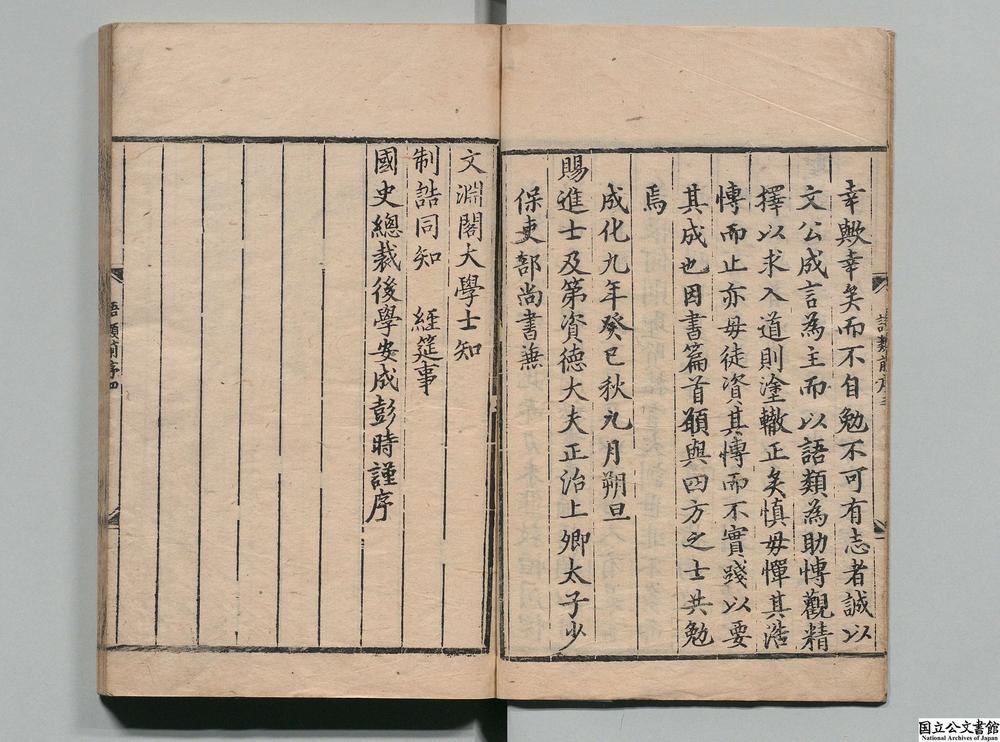 幸歟幸矣而不自勉不可有志者誠以
文公成言為主而以語類為助愽觀精
擇以求入道則塗轍正矣慎毋憚其浩
愽而止亦毋徒資其愽而不實踐以要
其成也因書篇首願與四方之士共勉
焉
成化九年癸巳秋九月朔旦
賜進士及第資德大夫正治上卿太子少
保吏部尚書兼
文淵閣大學士知
制誥同知 經筵事
國史總裁後學安成彭時謹序
語類前序四
国立公文書館
National Archives of Japan